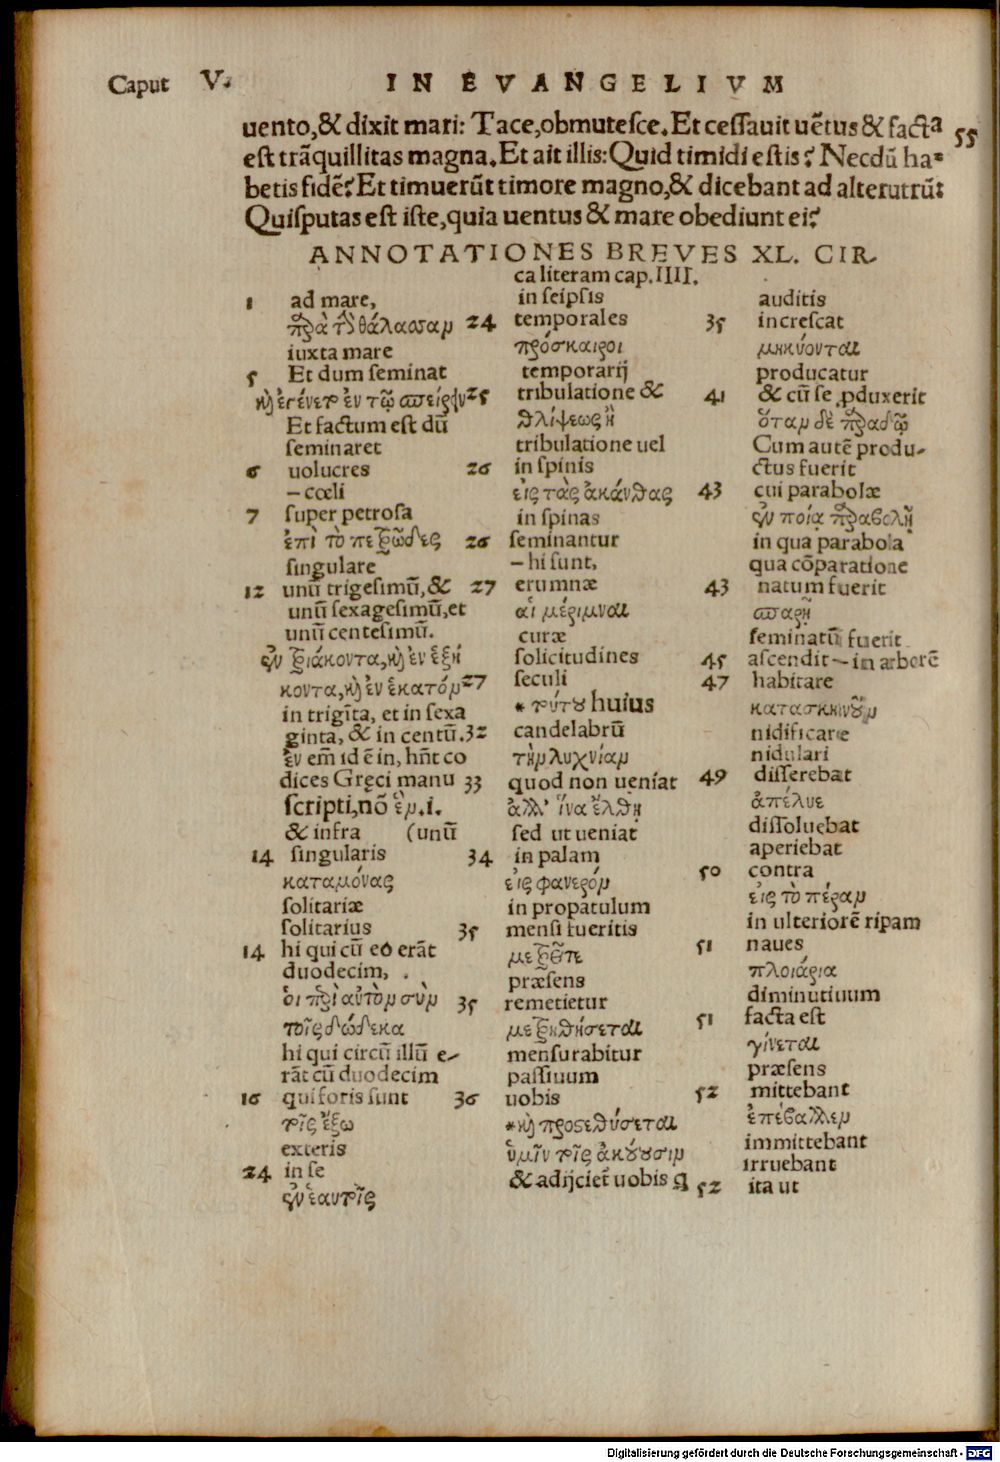 Caput V.
IN EVANGELIVM
uento,& dixit mari: Tace,obmutesce. Et cessauit uẽtus & facta 55
est trãquillitas magna. Et ait illis: Quid timidi estis? Necdũ ha=
betis fidẽ? Et timuerũt timore magno,& dicebant ad alterutrũ:
Quisputas est iste,quia uentus & mare obediunt ei?
ANNOTATIONES BREVES XL. CIR-
ca literam cap.IIII.
1 ad mare,
παρὰ τὴν θάλασσαμ
iuxta mare
5 Et dum seminat
καὶ ἐγένετο ἐν τῷ σπείρειν
Et factum est dũ
seminaret
6 uolucres
– cœli
7 super petrosa
ἐπὶ τὸ πετρῶδες
singulare
12 unũ trigesimũ,&
unũ sexagesimũ,et
unũ centesimũ.
ἐν τριάκοντα,καὶ ἐν ἑξή
κοντα,καὶ ἐν ἑκατόμ
in trigĩta, et in sexa
ginta, & in centũ.
ἐν em̃ id ẽ in, hñt co
dices Gręci manu
scripti,nõ ἓμ.i.
& infra (unũ
14 singularis
καταμόνας
solitariæ
solitarius
14 hi qui cũ eo erãt
duodecim, .
ὁι περὶ αὐτὸμ σὺμ
τοῖς δώδεκα
hi qui circũ illũ e-
rãt cũ duodecim
16 qui foris sunt
τοῖς ἔξω
exteris
24 in se
ἐν ἑαυτοῖς
in seipsis
24 temporales
πρόσκαιροι
temporarij
25 tribulatione &
θλίψεως ἢ
tribulatione uel
26 in spinis
εἰς τὰς ἀκάνθας
in spinas
26 seminantur
– hi sunt,
27 erumnæ
αἱ μέριμναι
curæ
solicitudines
27 seculi
* τούτου huius
32 candelabrũ
τὴμ λυχνίαμ
33 quod non ueniat
ἀλλ' ἵνα ἔλθῃ
sed ut ueniat
34 in palam
εἰς φανερόμ
in propatulum
35 mensi fueritis
μετρεῖτε
præsens
35 remetietur
μετρηθήσεται
mensurabitur
passiuum
36 uobis
*καὶ προστεθήσεται
ὑμῖν τοῖς ἀκούουσιμ
& adijciet̃ uobis q
auditis
35 increscat
μηκύονται
producatur
41 & cũ se ꝓduxerit
ὅταμ δὲ παραδῷ
Cum autẽ produ-
ctus fuerit
43 cui parabolæ
ἐν ποίᾳ παραβολῇ
in qua parabola
qua cõparatione
43 natum fuerit
σπαρῇ
seminatũ fuerit
45 ascendit – in arborẽ
47 habitare
κατασκηνοῦμ
nidificare
nidulari
49 disserebat
ἀπέλυε
dissoluebat
aperiebat
50 contra
εἰς τὸ πέραμ
in ulteriorẽ ripam
51 naues
πλοιάρια
diminutiuum
51 facta est
γίνεται
præsens
52 mittebant
ἐπέβαλλεμ
immittebant
irruebant
52 ita ut
Digitalisierung gefördert durch die Deutsche Forschungsgemeinschaft - DFG